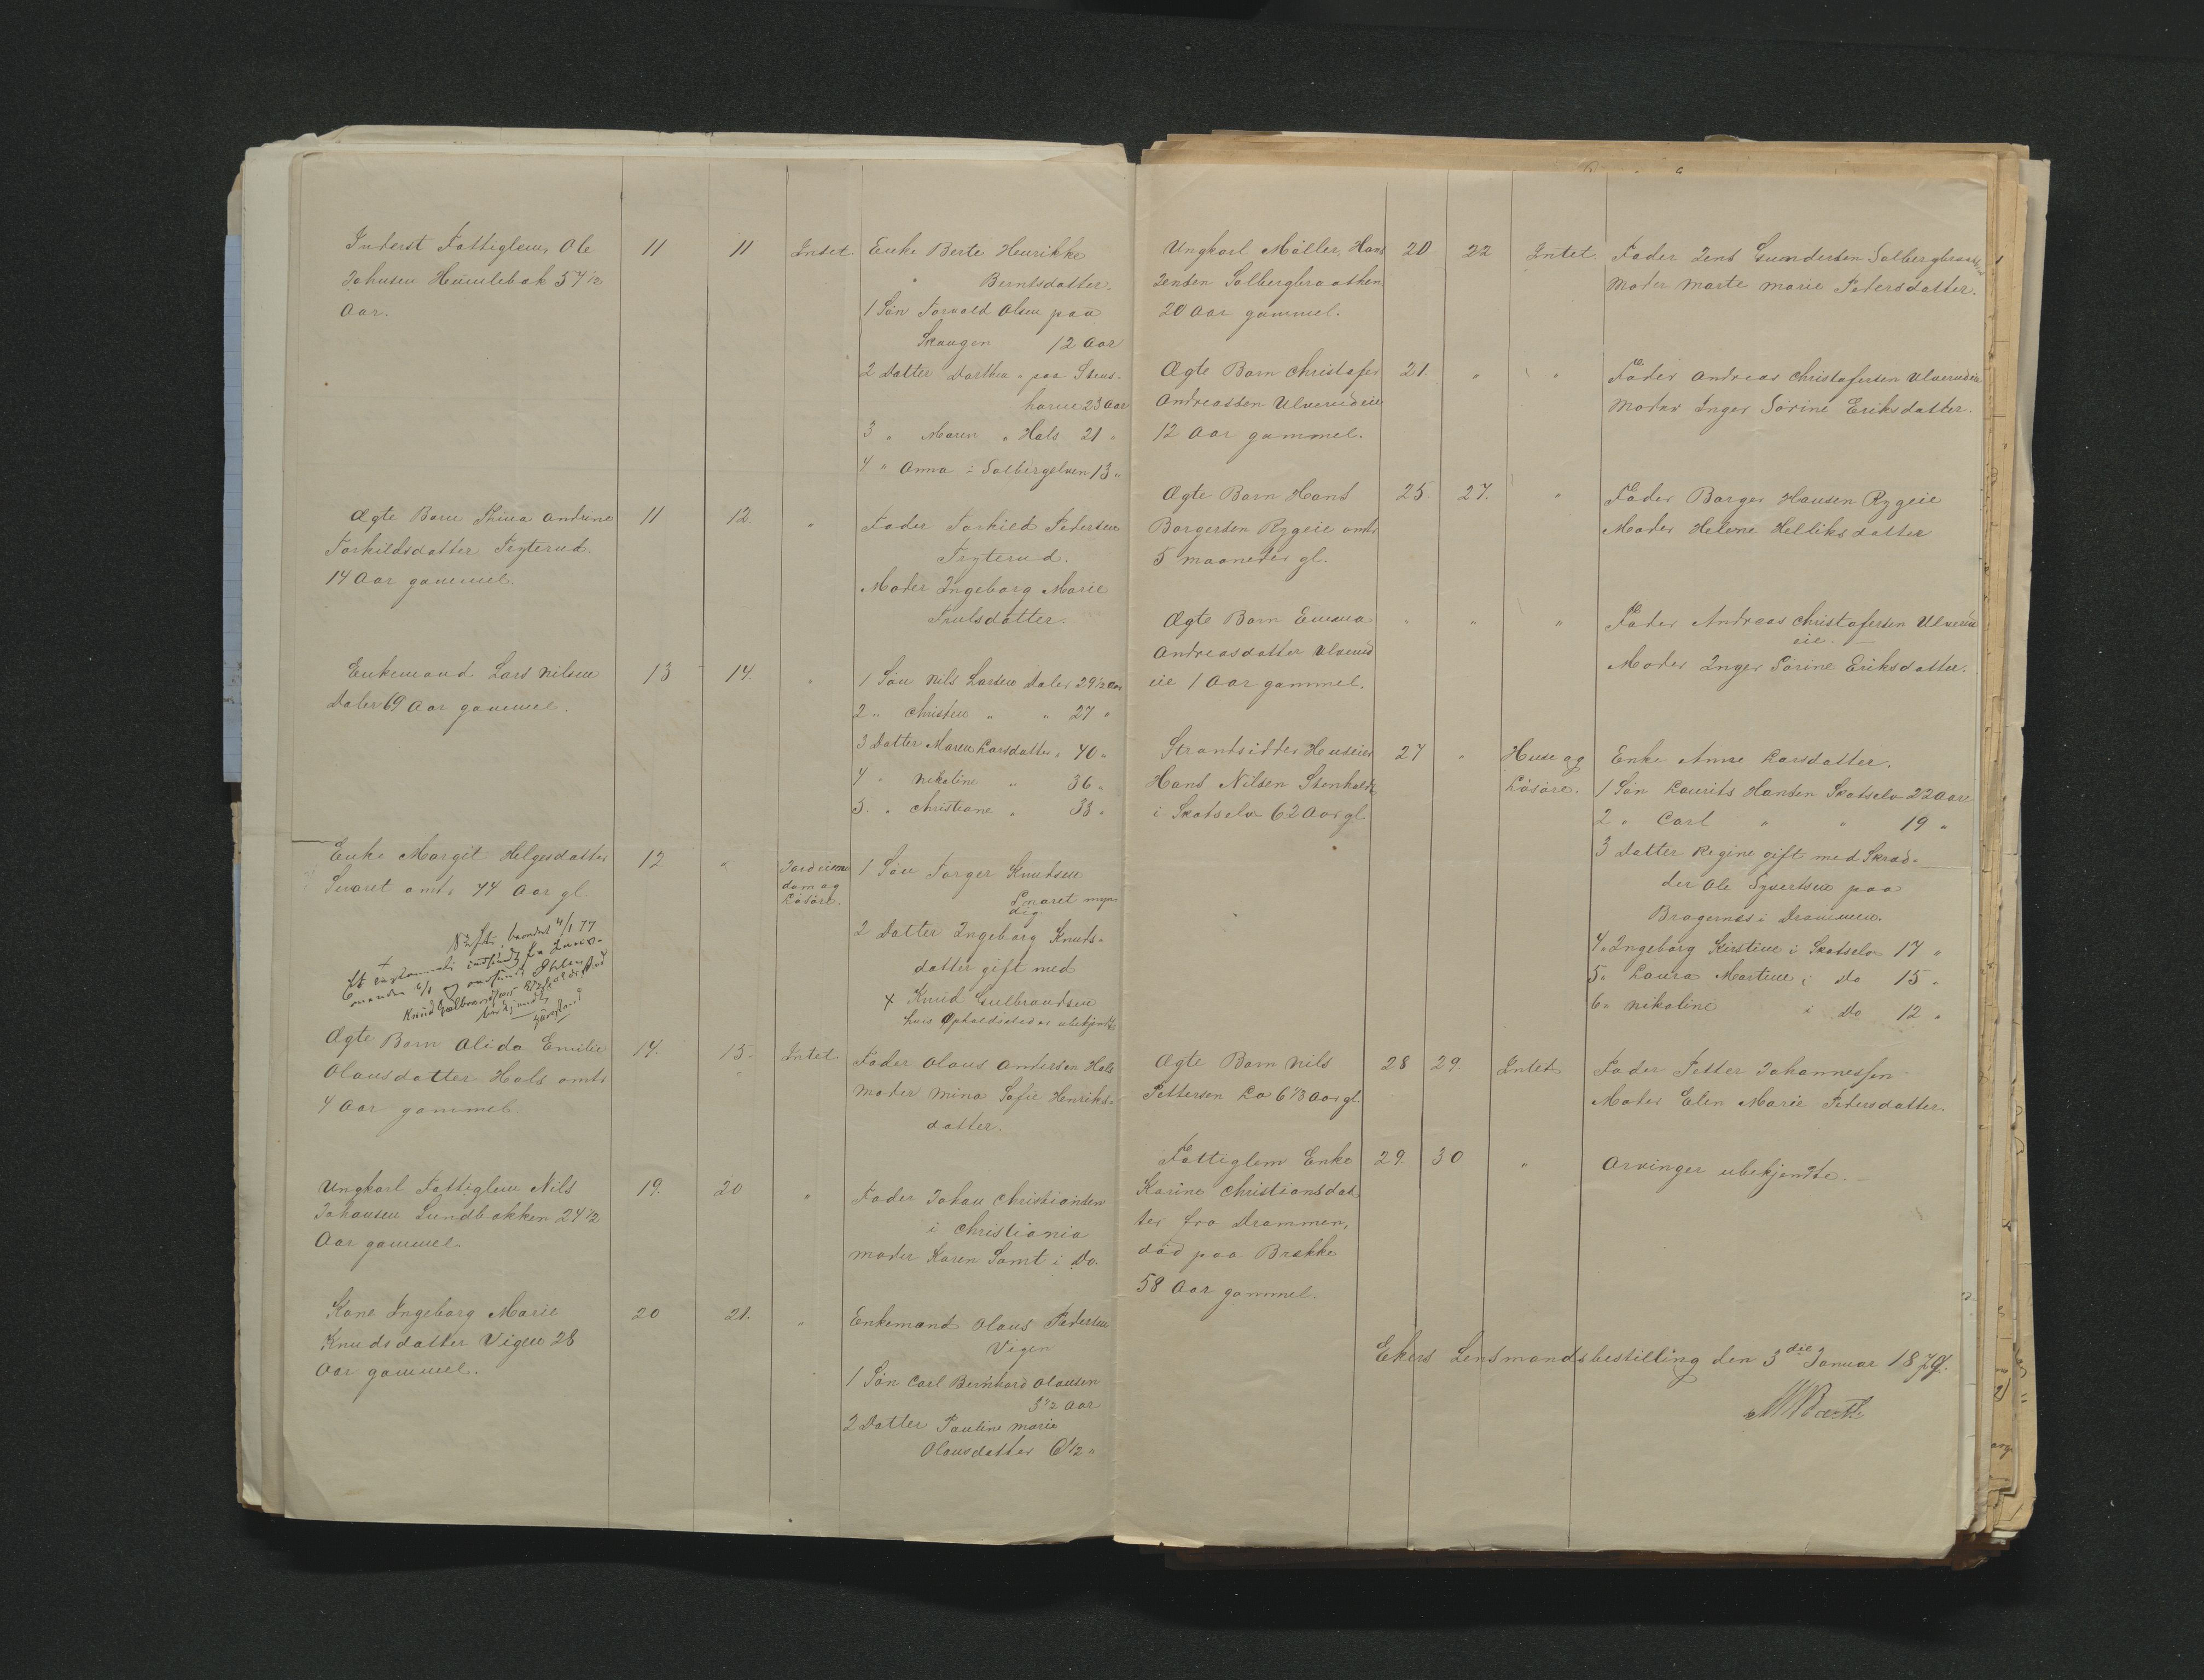 Inderst Fattiglem, Ole 11 11 Intet. Enke Berte Henrikke
Johnsen Humlebæk 54 1/2 Berntsdatter.
Aar. 1 Søn Torvald Olsen paa
Skaugen 12 Aar
2 Datter Dorthea " paa Stens-
horne 23 Aar
3 " Maren " Hals 21 "
4 " Anna i Solbergelven 13 "
Ægte Barn Thina Andrine 11 12. " Fader Torkild Pedersen
Torkildsdatter Fryterud. Fryterud.
14 Aar gammel. Moder Ingeborg Marie
Trulsdatter.
Enkemand Lars Nilsen 13 14. " 1 Søn Nils Larsen Daler 29 1/2 Aar
Daler 69 Aar gammel. 2 " Christen " " 27 "
3 Datter Maren Larsdatter " 40 "
4 " Nikoline " 36 "
5. " Christiane " 33 "
Enke Margit Helgesdatter 12 " Jordeien- 1 Søn Torger Knudsen
Smaret omtr 44 Aar gl. dom og Smaret myn-
Løsøre. dig.
2 Datter Ingeborg Knuds-
datter gift med
x Knud Gulbrandsen
hvis Opholdssted er ubekjendt
4/1 77
6/1 og
Knud Gulbrandsens
Ægte Barn Alida Emilie 14. 15. Intet Fader Olaus Andersen Hals
Olausdatter Hals omtr Moder Mina Sofie Henriks-
4 Aar gammel. datter.
Ungkarl Fattiglem Nils 19. 20 " Fader Johan Christiansen
Johansen Lundbakken 24 1/2 i Christiania
Aar gammel. Moder Karen Samt i Do.
Kone Ingeborg Marie 20 21. " Enkemand Olaus Pedersen
Knudsdatter Vigen 28 Vigen
Aar gammel. 1 Søn Carl Bernhard Olausen
3 1/2 Aar
2 Datter Pauline Marie
Olausdatter 6 1/2 "
Ungkarl Møller, Hans 20 22 Intet. Fader Jens Gundersen Solbergbraathen
Jensen Solbergbraathen Moder Marte Marie Pedersdatter.
20 Aar gammel.
Ægte Barn Christofer 21. " " Fader Andreas Christofersen Ulverudeie
Andreassen Ulverudeie Moder Inger Sørine Eriksdatter.
12 Aar gammel.
Ægte Barn Hans 25. 27. " Fader Borger Hansen Rygeie
Borgersen Rygeie omtr Moder Helene Helliksdatter
5 Maaneder gl.
Ægte Barn Emma " " " Fader Andreas Christofersen Ulverud-
Andreasdatter Ulverud eie.
eie 1 Aar gammel. Moder Inger Sørine Eriksdatter.
Strandsidder Huseier 27 " Huse og Enke Anne Larsdatter.
Hans Nilsen Løsøre. 1 Søn Laurits Hansen Skotselv 22 Aar
i Skotselv 62 Aar gl. 2 " Carl " " 19 "
3 Datter Regine gift med Skræd-
der Ole Syvertsen paa
Bragernæs i Drammen.
4 " Ingeborg Kirstine i Skotselv 17 "
5 " Laura Martine i Do 15 "
6 " Nikoline i Do 12 "
Ægte Barn Nils 28 29. Intet Fader Petter Johannessen
Pettersen Lo 6 1/3 Aar gl. Moder Elen Marie Pedersdatter.
Fattiglem Enke 29 30 " Arvinger ubekjendte.
Karine Christiansdat-
ter fra Drammen,
død paa Brekke
58 Aar gammel.
Ekers Lensmandsbestilling den 3die Januar 1879.